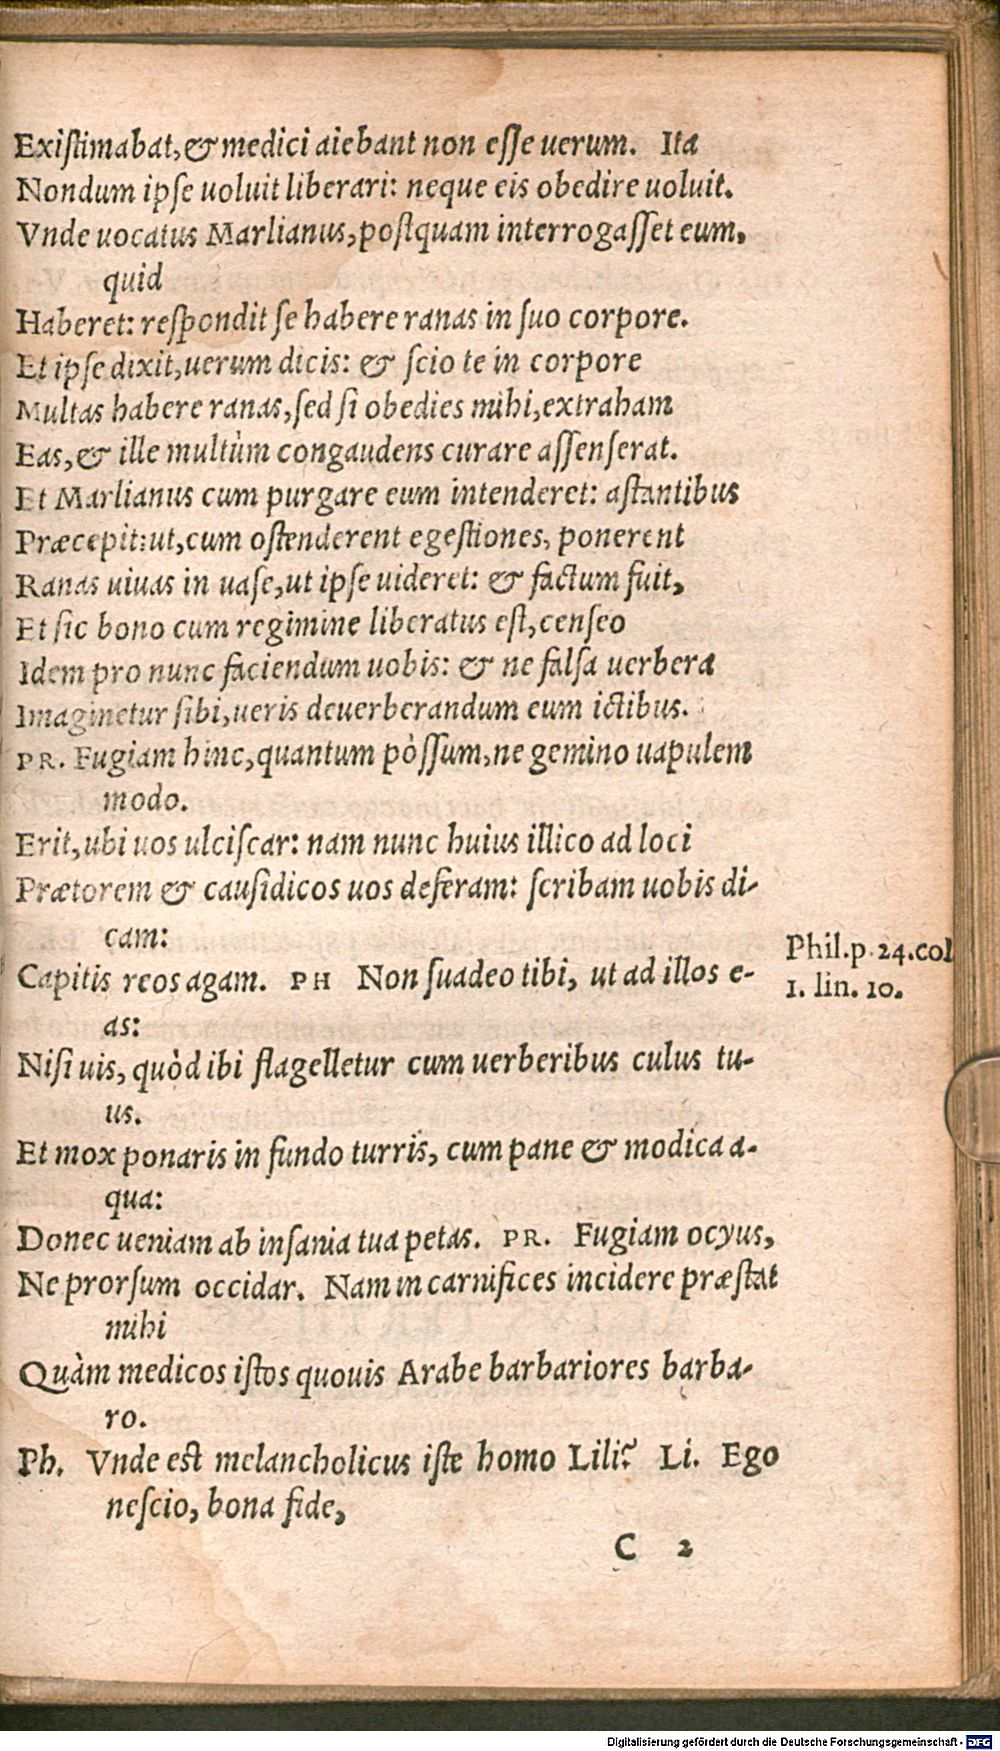 Exiſtimabat, & medici aiebant non eſſe uerum. Ita
Nondum ipſe uoluit liberari: neque eis obedire uoluit.
Vnde uocatus Marlianus, poſtquam interrogaſſet eum,
quid
Haberet: reſpondit ſe habere ranas in ſuo corpore.
Et ipſe dixit, uerum dicis: & ſcio te in corpore
Multas habere ranas, ſed ſi obedies mihi, extraham
Eas, & ille multùm congaudens curare aſſenſerat.
Et Marlianus cum purgare eum intenderet: aſtantibus
Præcepit: ut, cum oſtenderent egeſtiones, ponerent
Ranas uiuas in uaſe, ut ipſe uideret: & factum fuit,
Et ſic bono cum regimine liberatus eſt, cenſeo
Idem pro nunc faciendum uobis: & ne falſa uerbera
Imaginetur ſibi, ueris deuerberandum eum ictibus.
PR. Fugiam hinc, quantum pòſſum, ne gemino uapulem
modo.
Erit, ubi uos ulciſcar: nam nunc huius illico ad loci
Prætorem & cauſidicos uos deferam: ſcribam uobis di-
cam:
Capitis reos agam. PH Non ſuadeo tibi, ut ad illos e-
as:
Phil. p. 24. col
1. lin. 10.
Niſi uis, quòd ibi flagelletur cum uerberibus culus tu-
us.
Et mox ponaris in fundo turris, cum pane & modica a-
qua:
Donec ueniam ab inſania tua petas. PR. Fugiam ocyus,
Ne prorſum occidar. Nam in carnifices incidere præſtat
mihi
Quàm medicos iſtos quouis Arabe barbariores barba-
ro.
Ph. Vnde eſt melancholicus iſte homo Lili? Li. Ego
neſcio, bona fide,
C 2
Digitalisierung gefördert durch die Deutsche Forschungsgemeinschaft - DFG